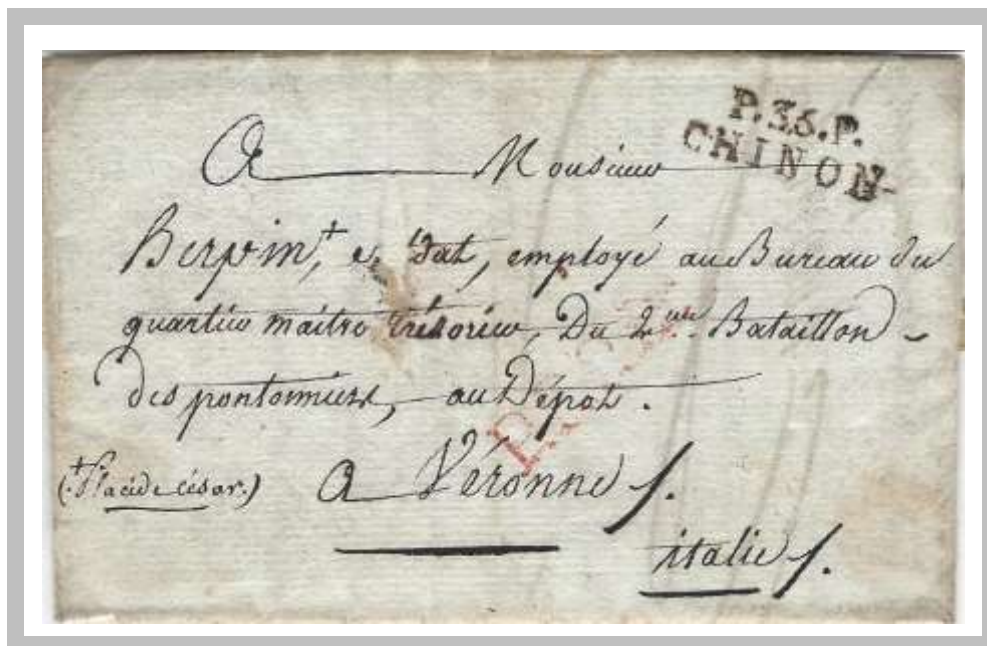 P.36.P.
CHINON
A Monsieur
employé au Bureau du
quartier maître trésorier, Du 2me Bataillon
des pontonniers, au Dépot.
(Placide césar.) A Véronne
italie